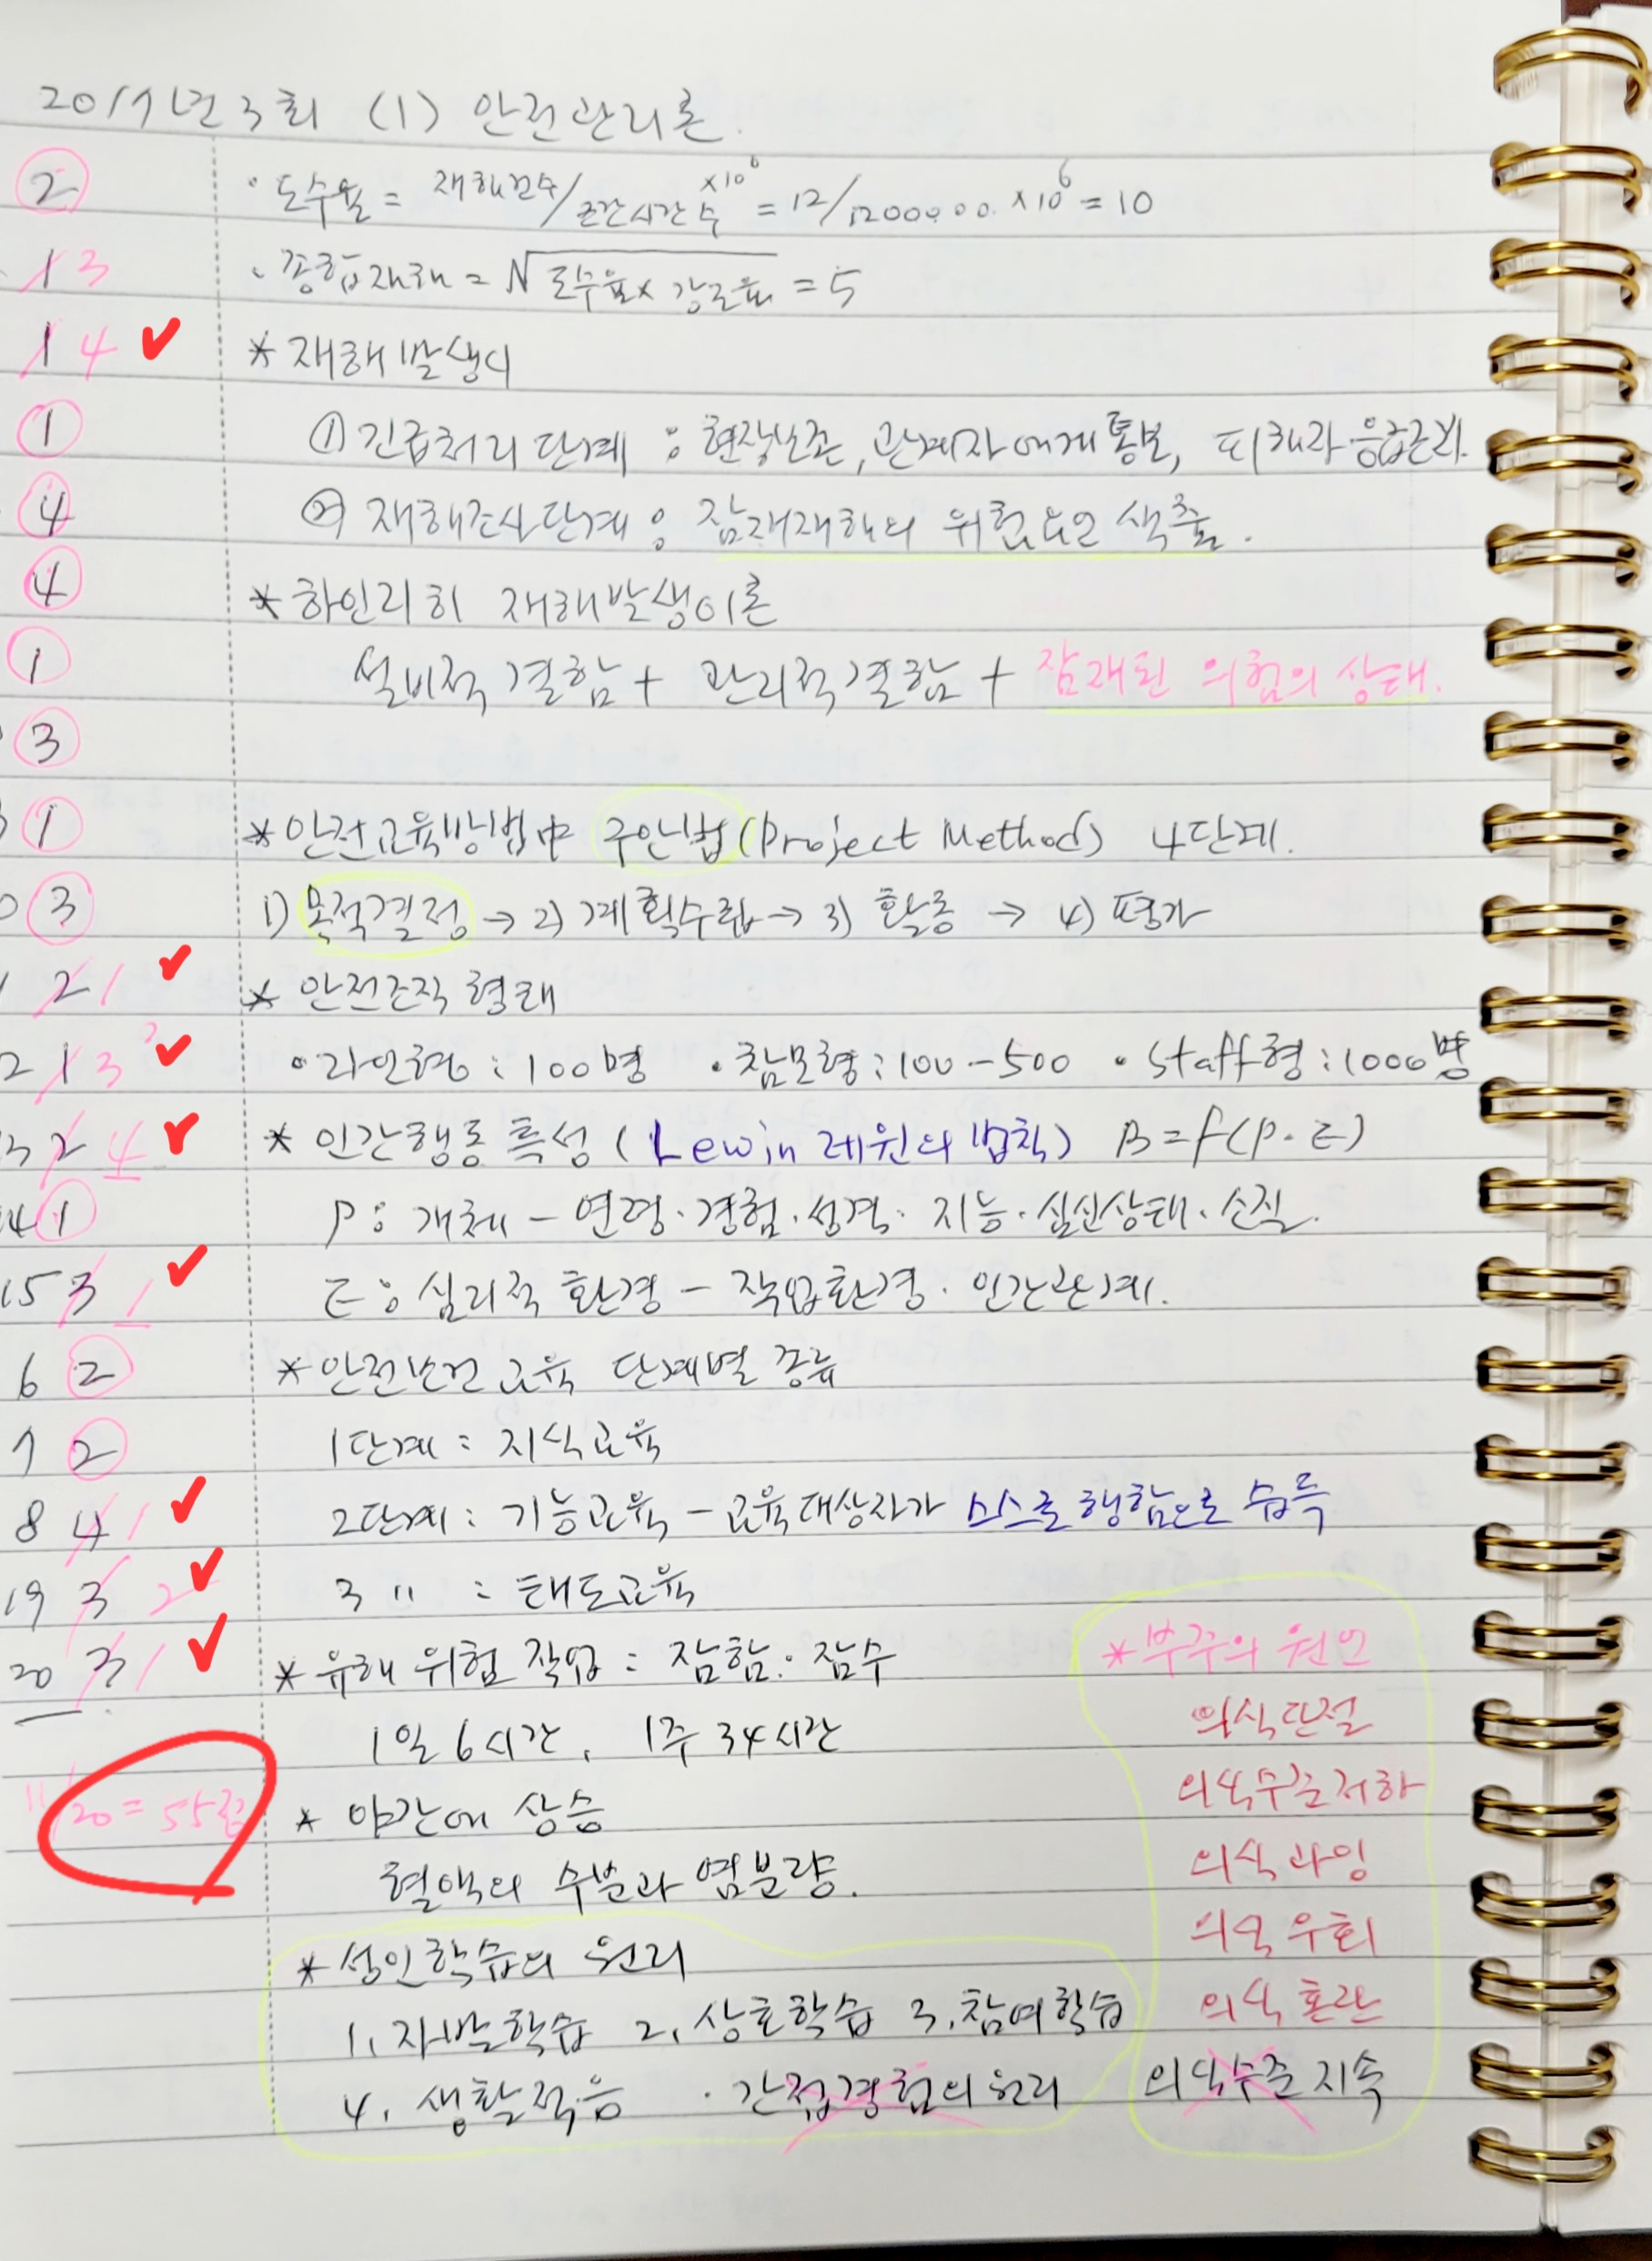 2017년 3회 (1) 안전관리론.
② · 도수율 = 재해건수/근로시간수 ×10⁶ = 12/1200000 ×10⁶ = 10
1 3 · 종합재해 = √도수율× 강도율 = 5
1 4 ✔ * 재해발생시
① ① 긴급처리 단계 : 현장보존, 관계자에게 통보, 피해자응급조치.
④ ② 재해조사단계 : 잠재재해의 위험요인 색출.
④ * 하인리히 재해발생이론
① 설비적결함 + 관리적결함 + 잠재된 위험의 상태.
③
① * 안전교육방법中 구안법(Project Method) 4단계.
③ 1) 목적결정 → 2) 계획수립 → 3) 활동 → 4) 평가
2 1 ✔ * 안전조직 형태
2 1 3 ✔ · 라인형 : 100명 · 참모형 : 100-500 · Staff형 : 1000명
3 2 4 ✔ * 인간행동 특성 (Lewin 레윈의 법칙) B=f(P·E)
4 ① P : 개체 - 연령·경험·성격·지능·심신상태·소질.
15 3 1 ✔ E : 심리적 환경 - 작업환경·인간관계.
6 ② * 안전보건교육 단계별 종류
7 ② 1단계 : 지식교육
8 4 1 ✔ 2단계 : 기능교육 - 교육대상자가 스스로 행함으로 습득
19 3 2 ✔ 3 〃 : 태도교육
20 3 1 ✔ * 유해 위험 작업 : 잠함·잠수 * 부주의 원인
1일 6시간, 1주 34시간 의식단절
11/20 = 55점 * 야간에 상승 의식수준저하
혈액의 수분과 염분량. 의식 과잉
의식 우회
* 성인학습의 원리
의식 혼란
1. 자발학습 2. 상호학습 3. 참여학습
4. 생활적응 · 간접경험의 원리 의식수준 지속